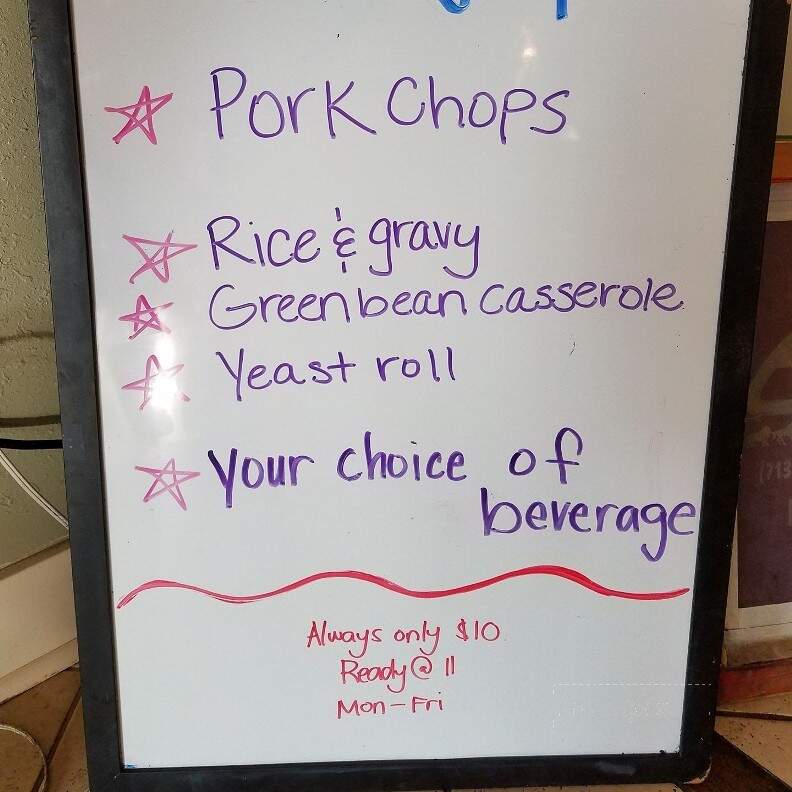 Pork Chops
Rice & gravy
Green bean casserole
Yeast roll
Your choice of
beverage
Always only $10
Ready @ 11
Mon-Fri